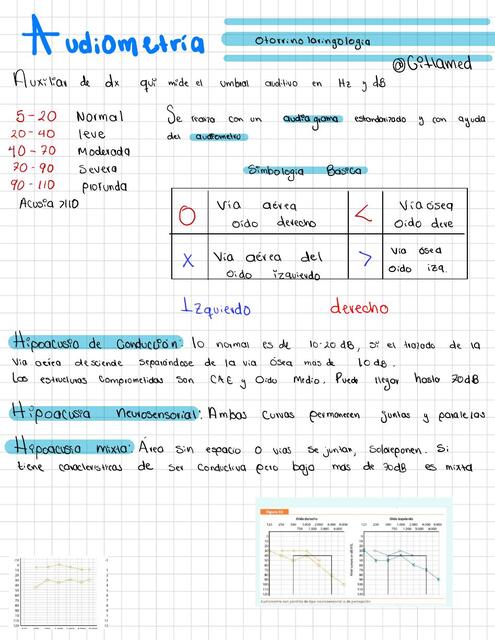 Audiometría
Otorrino laringologia
@Gitlamed
Auxiliar de dx qui mide el umbral auditivo en Hz y dB
5-20 Normal
20-40 leve
40-70 Moderada
70-90 Severa
90-110 profunda
Acusia >110
Se realiza con un audiograma estandarizado y con ayuda
del audiometro
Simbologia Basica
O Via aérea
oido derecho
< Via ósea
Oido dere
X Via aérea del
Oido izquierdo
> Via ósea
oido izq.
Izquierdo derecho
Hipoacusia de Conducción: lo normal es de 10-20 dB, si el trazado de la
Via aérea desciende separándose de la via ósea mas de 10 dB.
Las estructuras Comprometidas Son CAE y Oido Medio. Puede llegar hasta 70dB
Hipoacusia Neurosensorial: Ambas Curvas permanecen juntas y paralelas
Hipoacusia mixta: Área sin espacio o vias se juntan, Solareponen. Si
tiene caracteristicas de ser Conductiva pero bajo mas de 70dB es mixta
Oido derecho
Oido izquierdo